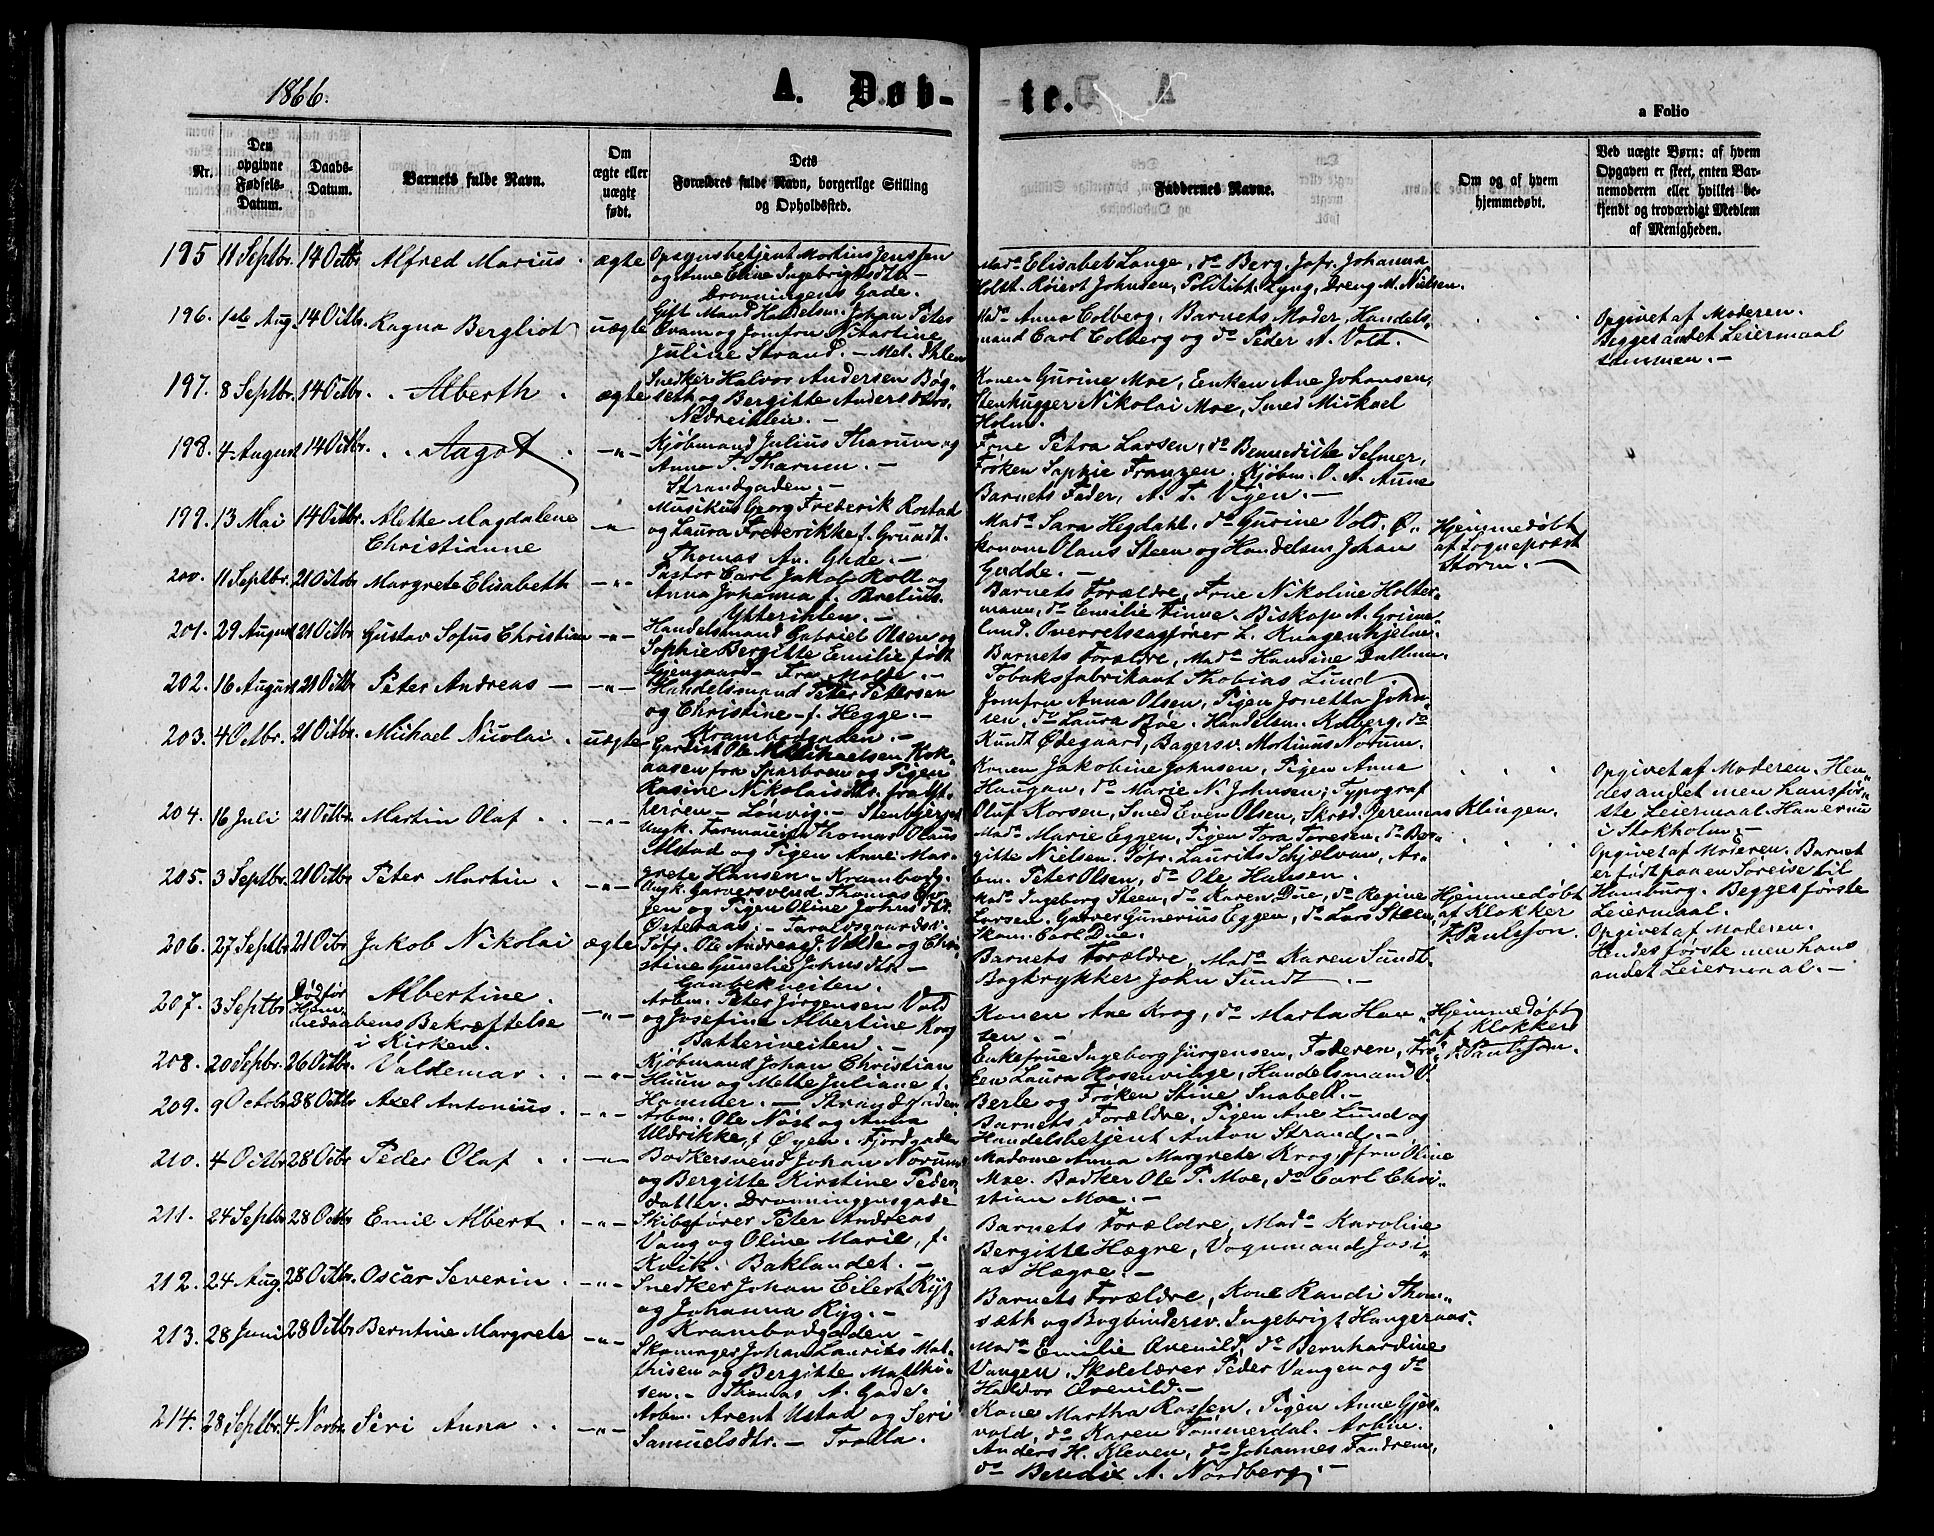 1866.
A. Døb-
te.
a Folio
Nr.
Den
opgivne
Fødsels-
Datum.
Daabs-
Datum.
Barnets fulde Navn.
Om
ægte eller
uægte
født.
Dets
Forældres fulde Navn, borgerlige Stilling
og Opholdssted.
Faddernes Navne.
Om og af hvem
hjemmedøbt.
Ved uægte Børn: af hvem
Opgaven er skeet, enten Bar-
nemoderen eller hvilket be-
kjendt og troværdigt Medlem
af Menigheden.
195 11 Septbr. 14 Octbr Alfred Marius. ægte
Opsynsbetjent Mortius Jenssen
og Anne Eline Ingebrigtsdtr. –
Dronningens Gade.
Mad. Elisabet Lange, do Berg, Jofr. Johanna
Holst. Røiert Johnsen, Politibt. Lyng, Dreng M. Nielsen.
196. 1ste Aug. 14 Octbr. Ragna Bergliot uægte
Gift Mand Handelsm. Johan Peter
Svam og Jomfru N. Martine
Juline Strand. – Mel. Ihlen
Mad. Anna Colberg. Barnets Moder, Handels-
mand Carl Colberg og do Peder A. Vold.
Opgivet af Moderen.
Begges andet Leiermaal
sammen. –
197. 8 Septbr. 14 Octbr. Alberth. ægte
Snedker Halvor Andersen Bøg-
seth og Bergitte Andersdtr.
Nedreihlen. –
Konen Gurine Moe, Enken Ane Johansen,
Stenhugger Nikolai Moe, Smed Mickael
Holm.
198. 4 August 14 Octbr. Aagot –"–
Kjøbmand Julius Tharum og
Anna T. Tharum. –
Strandgaden. –
Frue Petra Larsen, do Bennedikte Selmer,
Frøken Sophie Franzen. Kjøbm. O. A. Aune
Barnets Fader, A. T. Vigen. –
199. 13 Mai 14 Octbr. Alette Magdalene
Christianne –"–
Musikus Georg Frederik Rostad
og Laura Frederikke f. Grundt.
Thomas An. Gade. –
Mad. Sara Hegdahl. do Gurine Vold. Ø-
konom Olaus Steen og Handelsm Johan
Gudde. –
Hjemmedøbt
af Sognepræst
Storm. –
200. 11 Septbr. 21 Octobr. Margrete Elisabeth –"–
Pastor Carl Jakob Roll og
Anna Johanna f. Brelius.
Ytterihlen. –
Barnets Forældre, Frue Nikoline Holter-
mann, do Emilie Finne. Biskop A. Grime-
lund. Overretssagfører L. Knagenhjelm.
201. 29 August 21 Octbr. Gustav Sofus Christian –"–
Handelsmand Gabriel Olsen og
Sophie Bergitte Emilie født
Gjengaard – Fra Molde. –
Barnets Forældre, Mada Handine Dallum.
Tobaksfabrikant Thobias Lund.
202. 16 August 21 Octbr. Peter Andreas – –"–
Handelsmand Peter Petersen
og Christine – f. Hegge. –
Krambodgaden. –
Jomfru Anna Olsen, Pigen Jonetta John-
sen, do Laura Bøe. Handelsm. Kolberg, do
Kundt Ødegaard, Bagersv. Mortinus Norum.
203. 4 Octbr. 21 Octbr. Michael Nicolai. uægte
Gardist Ole Mikaelsen Kok-
aasen fra Sparboen og Pigen
Rasine Nikolaisdtr. fra Ytt-
terøen – Lønvig. – Stenbjerget
Konen Jakobine Johnsen, Pigen Anna
Haugan, do Marie N. Johnsen; Typograf
Oluf Korsen, Smed Even Olsen, Skræd. Jeremias Klingen.
Opgivet af Moderen. Hen-
des andet men hans før-
ste Leiermaal. Han er nu
i Stokholm. –
204. 16 Juli 21 Octbr. Martin Olaf. –"–
Ungk. Farmaceut Thomas Olaus
Alstad og Pigen Anne Mar-
grete Hansen – Krambodg.
Mad. Marie Eggen, Pigen Tora Toresen, do Ber-
gitte Nielsen. Søfr. Laurits Schjølvan, Ar-
bm. Peter Olsen, do Ole Hansen.
Opgivet af Moderen. Barnet
er født paa en Søreise til
Hamburg. Begges første
Leiermaal.
205. 3 Septbr. 21 Octbr. Peter Martin. –"–
Ungk. Garversvend Thomas
Jen og Pigen Oline Johnsdtr
Østeraas. – Taraldsgaardsv.
Mad. Ingeborg Steen, do Karen Due, do Regine
Larsen. Garver Gunerius Eggen, do Lars Steen
Skom. Carl Due.
Hjemmedøbt
af Klokker
F. Paulsson.
Opgivet af Moderen.
Hendes første men hans
andet Leiermaal. –
206. 27 Septbr 21 Octbr. Jakob Nikolai ægte
Søfr. Ole Andreas J. Valde og Chri-
stine Gunelie Johnsdtr. –
Gaubekveiten.
Barnets Forældre, Mada Karen Sundt
Bogtrykker John Sundt. –
207. 3 Septbr Død før
Hjem-
medaa bens Bekræftelse
i Kirken.
Albertine. –"–
Arbm. Peter Jørgensen Vold
og Josefine Albertine Krog
Batteriveiten. –
Konen Ane Krog, do Marta Han-
sen. –
Hjemmedøbt
af Klokker
F. Paulsson.
208. 20 Septbr. 26 Octbr. Valdemar. –"–
Kjøbmand Johan Christian
Huun og Mette Juliane f.
Homster. – Strandgaden.
Enkefrue Ingeborg Jürgensen, Faderen, Frø-
ken Laura Rosenvinge, Handelsmand O.
Berle og Frøken Stine Snabell. –
209. 9 Octobr 28 Octbr Axel Antonius. –"–
Arbm. Ole Nøst og Anna
Uldrikke, f Øyen. Fjordgaden
Barnets Forældre. Pigen Ane Lund og
Handelsbetjent Anton Strand. –
210. 4 Octbr 28 Octbr Peder Olaf –"–
Bødkersvend Johan Norum
og Bergitte Kirstine Peder-
datter. Dronningensgade
Madame Anna Margrete Krog, Jfru Oline
Moe. Bødker Ole P. Moe, do Carl Chri-
stian Moe. –
211. 24 Septbr 28 Octbr Emil Albert. –"–
Skibsfører Peter Andreas
Vang og Oline Marie, f.
Kvik. Baklandet. –
Barnets Forældre, Mada Karoline
Bergitte Hægre, Vognmand Josi-
as Hægre. –
212. 24 Aug. 28 Octbr. Oscar Severin. –"–
Snedker Johan Eilert Ryg
og Johanna Ryg. –
Krambodgaden –
Barnets Forældre, Kone Randi Thom-
sæth og Bogbindersv. Ingebrigt Haugeraas.
213. 28 Juni 28 Octbr Berntine Margrete –"–
Skomager Johan Laurits Mat-
thisen og Bergitte Matthi-
sen. – Thomas A. Gade.
Mada Emilie Qvenild, do Bernhardine
Vangen. Skolelærer Peder Vangen og do
Haldor Qvenild. –
214. 28 Septbr. 4 Novbr. Siri Anna. –"–
Arbm. Arent Ustad og Seri
Samuelsdtr. – Trolla.
Kone Martha Rossen, Pigen Anne Gjes-
vold, do Karen Tømmerdal. Arbm.
Anders H. Kleven, do Johannes Tandrem,
do Bendix A. Nordberg. –